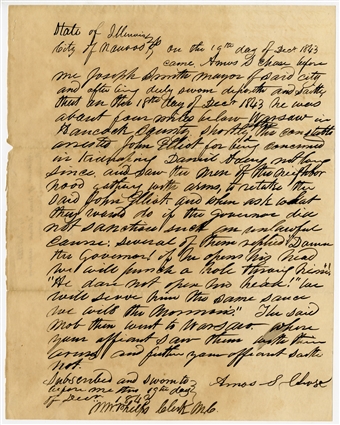 State of Illinois
City of Nauvoo ss. on the 19th day of Decr 1843
came Amos S Chase before
me Joseph Smith mayor of said city
and after being duly sworn deposeth and saith
that on the 18th day of Decr 1843 he was
about four miles below Warsaw in
Hancock County shortly after constable
arrested John Elliot for being concerned
in kidnapping Daniel Avery not long
since, and saw the men of the neighbor
hood gathering with arms, to retake the
said John Elliott and when ask what
they would do if the Governor did
not sanction such an unlawful
cause: several of them replied "Damn
the Governor! if he opens his head
we will punch a hole through him!"
"He dare not open his head!" "We
will serve him the same sauce
we will the Mormons." The said
mob then went to Warsaw where
your affiant saw them with their
arms and further your affiant saith
not.
Amos S. Chase
Subscribed and sworn to
before me this 19th day
of Decr 1843
W W Phelps Clerk M.C.